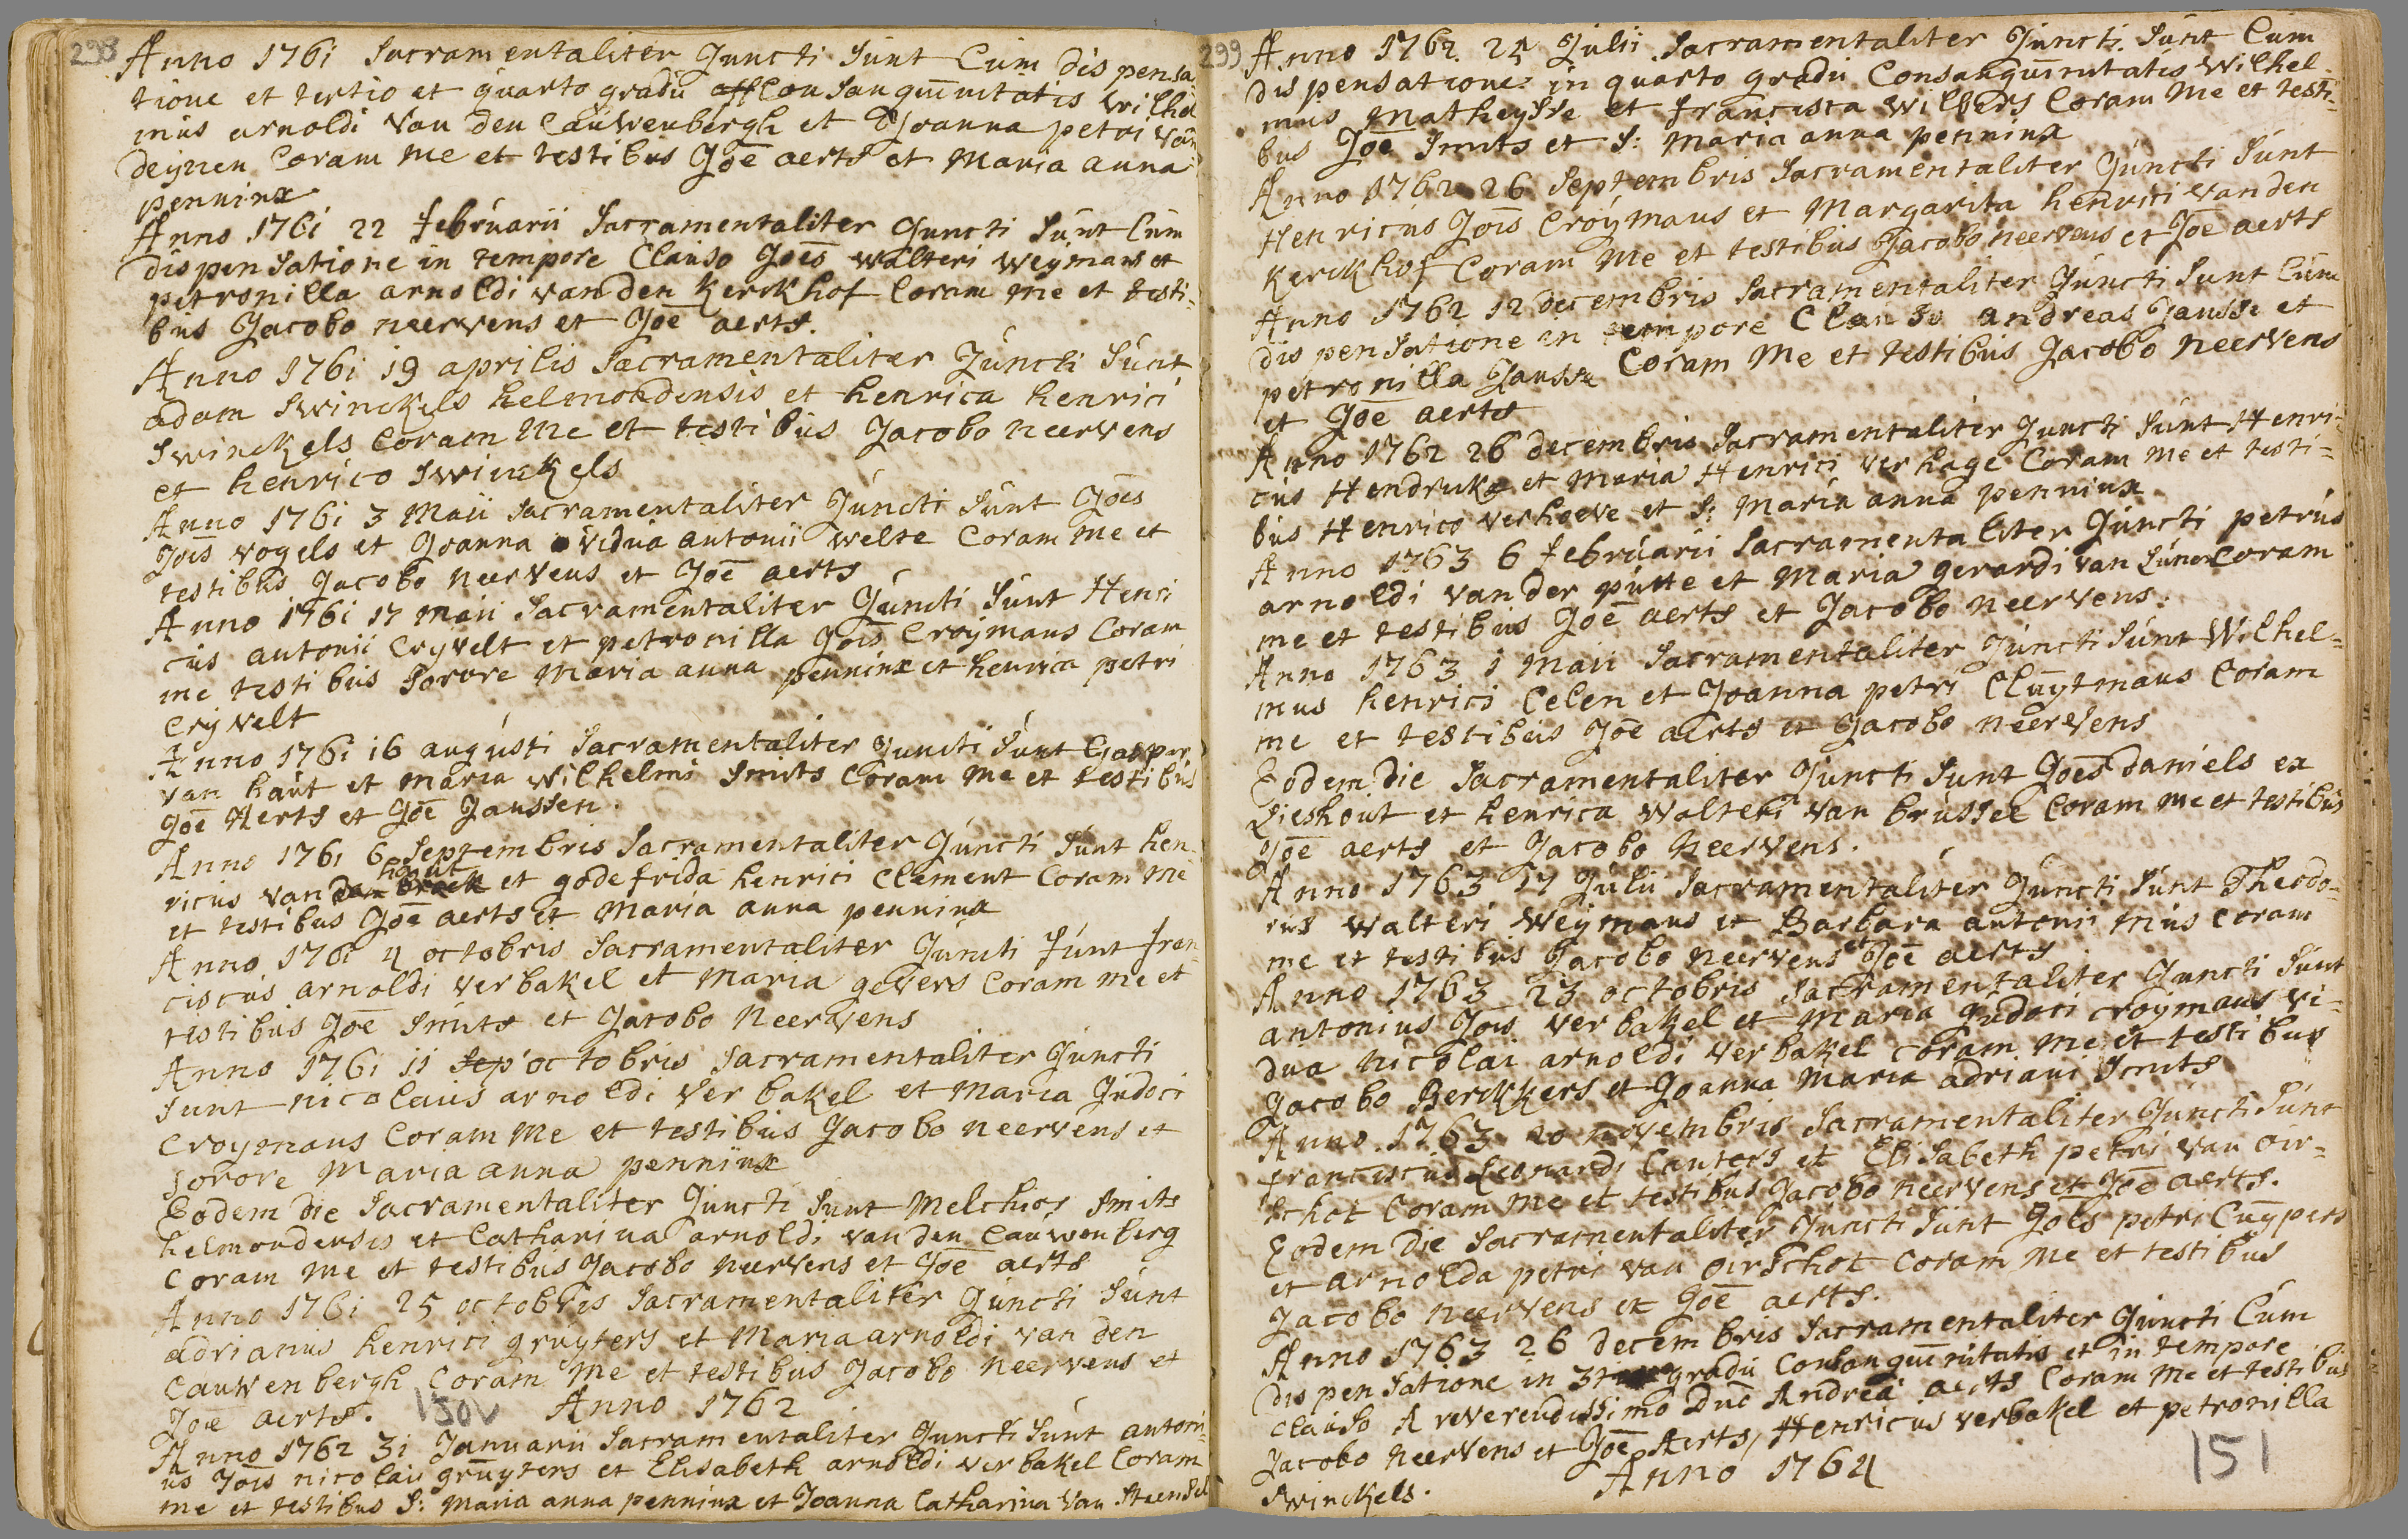 298
Anno 1761 Sacramentaliter Juncti Sunt Cum dispensa-
tione et tertio et quarto gradu Consanguinitatis Wilhel
mus arnoldi van den Cauwenbergh et Joanna petri van
deijnen Coram me et testibus Joē aerts et Maria anna
penninx
Anno 1761 22 februarii Sacramentaliter Juncti Sunt Cum
dispensatione in tempore Clauso Joēs walteri weijmans et
petronilla arnoldi van den Kerckhof Coram me et testi-
bus Jacobo neervens et Joē aerts.
Anno 1761 19 aprilis Sacramentaliter Juncti Sunt
adam Swinckels helmondensis et henrica henrici
Swinckels Coram me et testibus Jacobo neervens
et henrico Swinckels
Anno 1761 3 Maii Sacramentaliter Juncti Sunt Joēs
Joīs vogels et Joanna vidua antonii welte Coram me et
testibus Jacobo neervens et Joē aerts
Anno 1761 17 Maii Sacramentaliter Juncti Sunt Henri
cus antonii Crijvelt et petronilla Joīs Croijmans Coram
me testibus Sorore Maria anna penninx et henrica petri
Crijvelt
Anno 1761 16 augusti Sacramentaliter Juncti Sunt Gaspar
van haut et maria wilhelmi Smits Coram me et testibus
Joē Aerts et Joē Janssen.
Anno 1761 6 Septembris Sacramentaliter Juncti Sunt hen-
hoout
ricus van den broek et godefrida henrici Clement Coram me
et testibus Joē aerts et Maria anna penninx
Anno 1761 4 octobris Sacramentaliter Juncti Sunt fran-
ciscus arnoldi verbakel et Maria gevers Coram me et
testibus Joē Smits et Jacobo Neervens
Anno 1761 11 Sep octobris Sacramentaliter Juncti
Sunt nicolaus arnoldi Verbakel et Maria Judoci
Croymans Coram Me et testibus Jacobo neervens et
Sorore Maria anna penninx
Eodem die Sacramentaliter Juncti Sunt Melchior Smits
helmondensis et Catharina arnoldi van den Cauwenberg
Coram me et testibus Jacobo neervens et Joē aerts
Anno 1761 25 octobris Sacramentaliter Juncti Sunt
adrianus henrici gruyters et Maria arnoldi van den
Cauwenbergh Coram Me et testibus Jacobo neervens et
Joē aerts. 150v Anno 1762
Anno 1762 31 Januarii Sacramentaliter Juncti Sunt antoni-
us Joīs nicolai gruyters et Elisabeth arnoldi verbakel Coram
me et testibus S: Maria anna penninx et Joanna Catharina van Steensel
299
Anno 1762 24 Julii Sacramentaliter Juncti Sunt Cum
dispensatione in quarto gradu Consanguinitatis Wilhel-
mus Matheysse et francisca wilbers Coram me et testi-
bus Joē Smits et S: Maria anna penninx
Anno 1762 26 Septembris Sacramentaliter Juncti Sunt
Henricus Joīs Croijmans et Margarita henrici van den
Kerckhof Coram me et testibus Jacobo neervens et Joē aerts
Anno 1762 12 decembris Sacramentaliter Juncti Sunt Cum
dispensatione in tempore Clauso andreas Jansse et
petronilla Jansse Coram Me et testibus Jacobo neervens
et Joē aerts
Anno 1762 26 decembris Sacramentaliter Juncti Sunt Henri-
cus Hendrukx et Maria Henrici verhage Coram me et testi-
bus Henrico verhoeve et S: Maria anna penninx
Anno 1763 6 februarii Sacramentaliter Juncti petrus
arnoldi van der putte et Maria gerardi van Lunen Coram
me et testibus Joē aerts et Jacobo neervens.
Anno 1763 1 Maii Sacramentaliter Juncti Sunt Wilhel-
mus henrici Celen et Joanna petri Cluijtmans Coram
me et testibus Joē aerts et Jacobo neervens
Eodem die Sacramentaliter Juncti Sunt Joēs daniels ex
Lieshout et henrica Walteri van brussel Coram me et testibus
Joē aerts et Jacobo Neervens.
Anno 1763 17 Julii Sacramentaliter Juncti Sunt Theodo-
rus walteri Weijmans et Barbara antonii Mus Coram
me et testibus Jacobo Neervens et Joē aerts
Anno 1763 23 octobris Sacramentaliter Juncti Sunt
antonius Joīs verbakel et Maria Judoci croymans vi-
dua Nicolai arnoldi verbakel Coram me et testibus
Jacobo Berckkers et Joanna Maria adriani Smits
Anno 1763 20 novembris Sacramentaliter Juncti Sunt
franciscus Leonardi Canters et Elisabeth petri van Oir-
schot Coram me et testibus Jacobo neervens et Joē aerts.
Eodem die Sacramentaliter Juncti Sunt Joēs petri Cuypers
et arnolda petri van oirschot Coram me et testibus
Jacobo neervens et Joē aerts.
Anno 1763 26 decembris Sacramentaliter Juncti Cum
dispensatione in 3tio gradu Consanguinitatis et in tempore
Clauso A reverendissimo Dnō Andrea aerts Coram Me et testibus
Jacobo neervens et Joē Aerts, Henricus verbakel et petronilla
Swinckels. Anno 1764
151